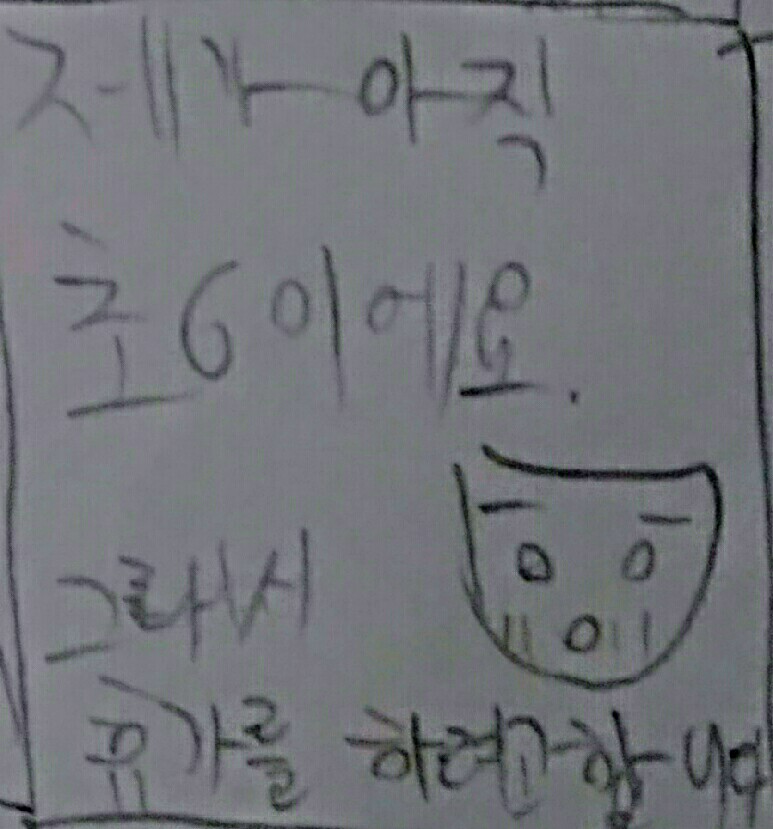 제가 아직
초6이에요.
그래서
휴가를 하려고 합니다